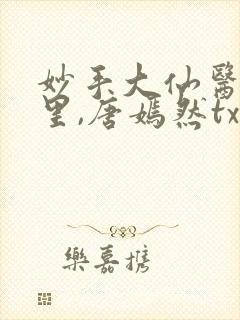 妙手大仙醫
里,唐嫣然tx
樂嘉攜